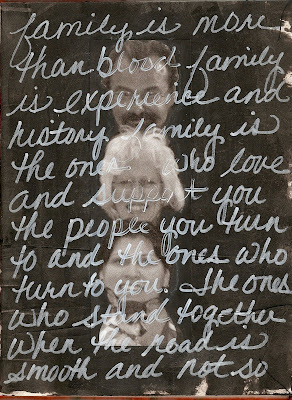 family is more
than blood family
is experience and
history family is
the ones who love
and support you
the people you turn
to and the ones who
turn to you. The ones
who stand together
when the road is
smooth and not so